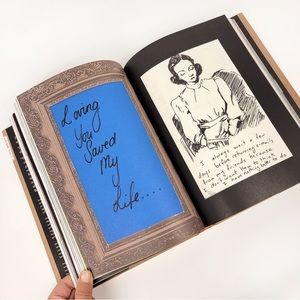 Loving
You
Saved
My
Life....
I always wait a few
days before returning e-mails
from my friends because
I don't want them to think
I have nothing better to do